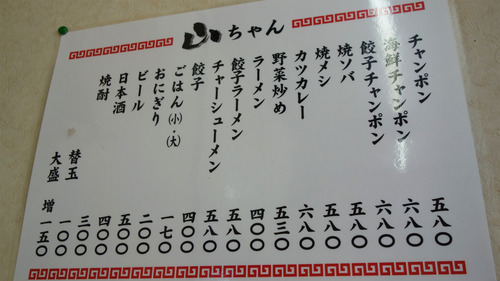 山ちゃん
チャンポン 五八〇
海鮮チャンポン 六八〇
餃子チャンポン 六八〇
焼ソバ 五八〇
焼メシ 五八〇
カツカレー 六八〇
野菜炒め 五三〇
ラーメン 四〇〇
餃子ラーメン 五八〇
チャーシューメン 五八〇
餃子 四〇〇
ごはん(小)・(大) 一七〇
おにぎり 二〇〇
ビール 五〇〇
日本酒 四〇〇
焼酎 三〇〇
替玉 一〇〇
大盛 増一五〇